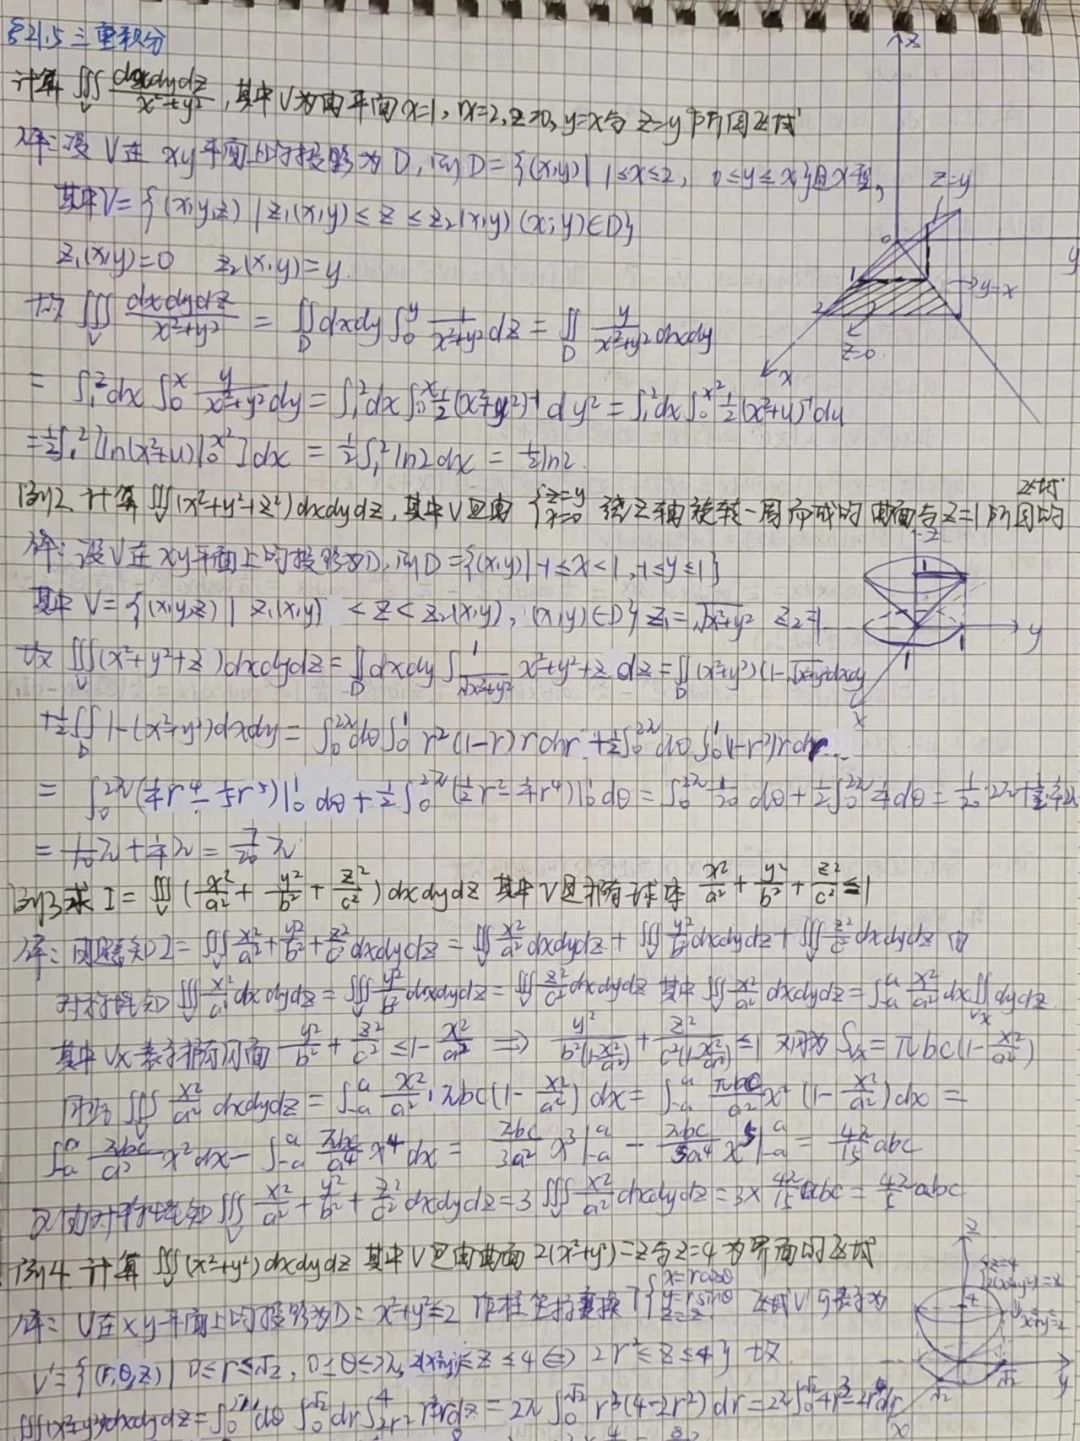 §21.5 三重积分
计算 ∭_V dxdydz/(x²+y²), 其中V为由平面x=1, x=2, z=0, y=x与z=y所围区域
解: 设V在xy平面上的投影为D, 则D={(x,y)| 1≤x≤2, 0≤y≤x}
其中V={(x,y,z) | z₁(x,y)≤z≤z₂(x,y) (x,y)∈D}
z₁(x,y)=0 z₂(x,y)=y.
故 ∭_V dxdydz/(x²+y²) = ∬_D dxdy ∫₀^y 1/(x²+y²) dz = ∬_D y/(x²+y²) dxdy
= ∫₁² dx ∫₀^x y/(x²+y²) dy = ∫₁² dx ∫₀^x ½(x²+y²)⁻¹ dy² = ∫₁² dx ∫₀^{x²} ½(x²+u)⁻¹ du
= ½∫₁² [ln(x²+u)|₀^{x²}] dx = ½∫₁² ln2 dx = ½ln2.
例2 计算 ∭_V (x²+y²+z) dxdydz, 其中V是由 {z=y x=0 绕z轴旋转一周而成的曲面与z=1所围的
区域.
解: 设V在xy平面上的投影为D, 则D={(x,y)|-1≤x≤1, -1≤y≤1}
其中 V={(x,y,z) | z₁(x,y) <z< z₂(x,y), (x,y)∈D} z₁=√(x²+y²) z₂=1
故 ∭_V (x²+y²+z) dxdydz = ∬_D dxdy ∫_{√(x²+y²)}^1 x²+y²+z dz = ∬_D (x²+y²)(1-√(x²+y²)) dxdy
+½∬_D 1-(x²+y²) dxdy = ∫₀^{2π} dθ ∫₀¹ r²(1-r) r dr + ½∫₀^{2π} dθ ∫₀¹ (1-r²) r dr
= ∫₀^{2π} (¼r⁴-⅕r⁵)|₀¹ dθ + ½∫₀^{2π} (½r²-¼r⁴)|₀¹ dθ = ∫₀^{2π} 1/20 dθ + ½∫₀^{2π} ¼ dθ = 1/20·2π+½·¼·2π
= 1/10 π + ¼π = 7/20 π
例3 求 I = ∭_V (x²/a² + y²/b² + z²/c²) dxdydz 其中V是椭球体 x²/a² + y²/b² + z²/c² ≤1
解: 由题意知 I = ∭_V x²/a² + y²/b² + z²/c² dxdydz = ∭ x²/a² dxdydz + ∭ y²/b² dxdydz + ∭ z²/c² dxdydz 由
对称性知 ∭ x²/a² dxdydz = ∭ y²/b² dxdydz = ∭ z²/c² dxdydz 其中 ∭ x²/a² dxdydz = ∫₋ₐ^a x²/a² dx ∬_{Vx} dydz
其中 Vx 表示椭圆面 y²/b² + z²/c² ≤ 1-x²/a² ⇒ y²/(b²(1-x²/a²)) + z²/(c²(1-x²/a²)) ≤1 S_{Vx} = πbc(1-x²/a²)
所以 ∭_V x²/a² dxdydz = ∫₋ₐ^a x²/a²·πbc(1-x²/a²) dx = ∫₋ₐ^a πbc/a² x²(1-x²/a²) dx =
∫₋ₐ^a πbc/a² x² dx - ∫₋ₐ^a πbc/a⁴ x⁴ dx = πbc/3a² x³|₋ₐ^a - πbc/5a⁴ x⁵|₋ₐ^a = 4π/15 abc
又由对称性知 ∭_V x²/a² + y²/b² + z²/c² dxdydz = 3∭ x²/a² dxdydz = 3×4π/15 abc = 4π/5 abc
例4 计算 ∭_V (x²+y²) dxdydz 其中V是由曲面 2(x²+y²)=z与z=4为界面的区域
解: V在xy平面上的投影为D: x²+y²≤2 作柱坐标变换 T {x=rcosθ y=rsinθ z=z 区域V可表示为
V'={(r,θ,z) | 0≤r≤√2, 0≤θ≤2π, 2(x²+y²)≤z≤4 ⇔ 2r²≤z≤4} 故
∭(x²+y²)dxdydz = ∫₀^{2π} dθ ∫₀^{√2} dr ∫_{2r²}^4 r²·r dz = 2π ∫₀^{√2} r³(4-2r²) dr = 2π∫₀^{√2} 4r³-2r⁵ dr
z
z=y
y
y=x
0
1
2
z=0
x
z
y
1
1
x
z
z=4
4
y
√2
√2
x